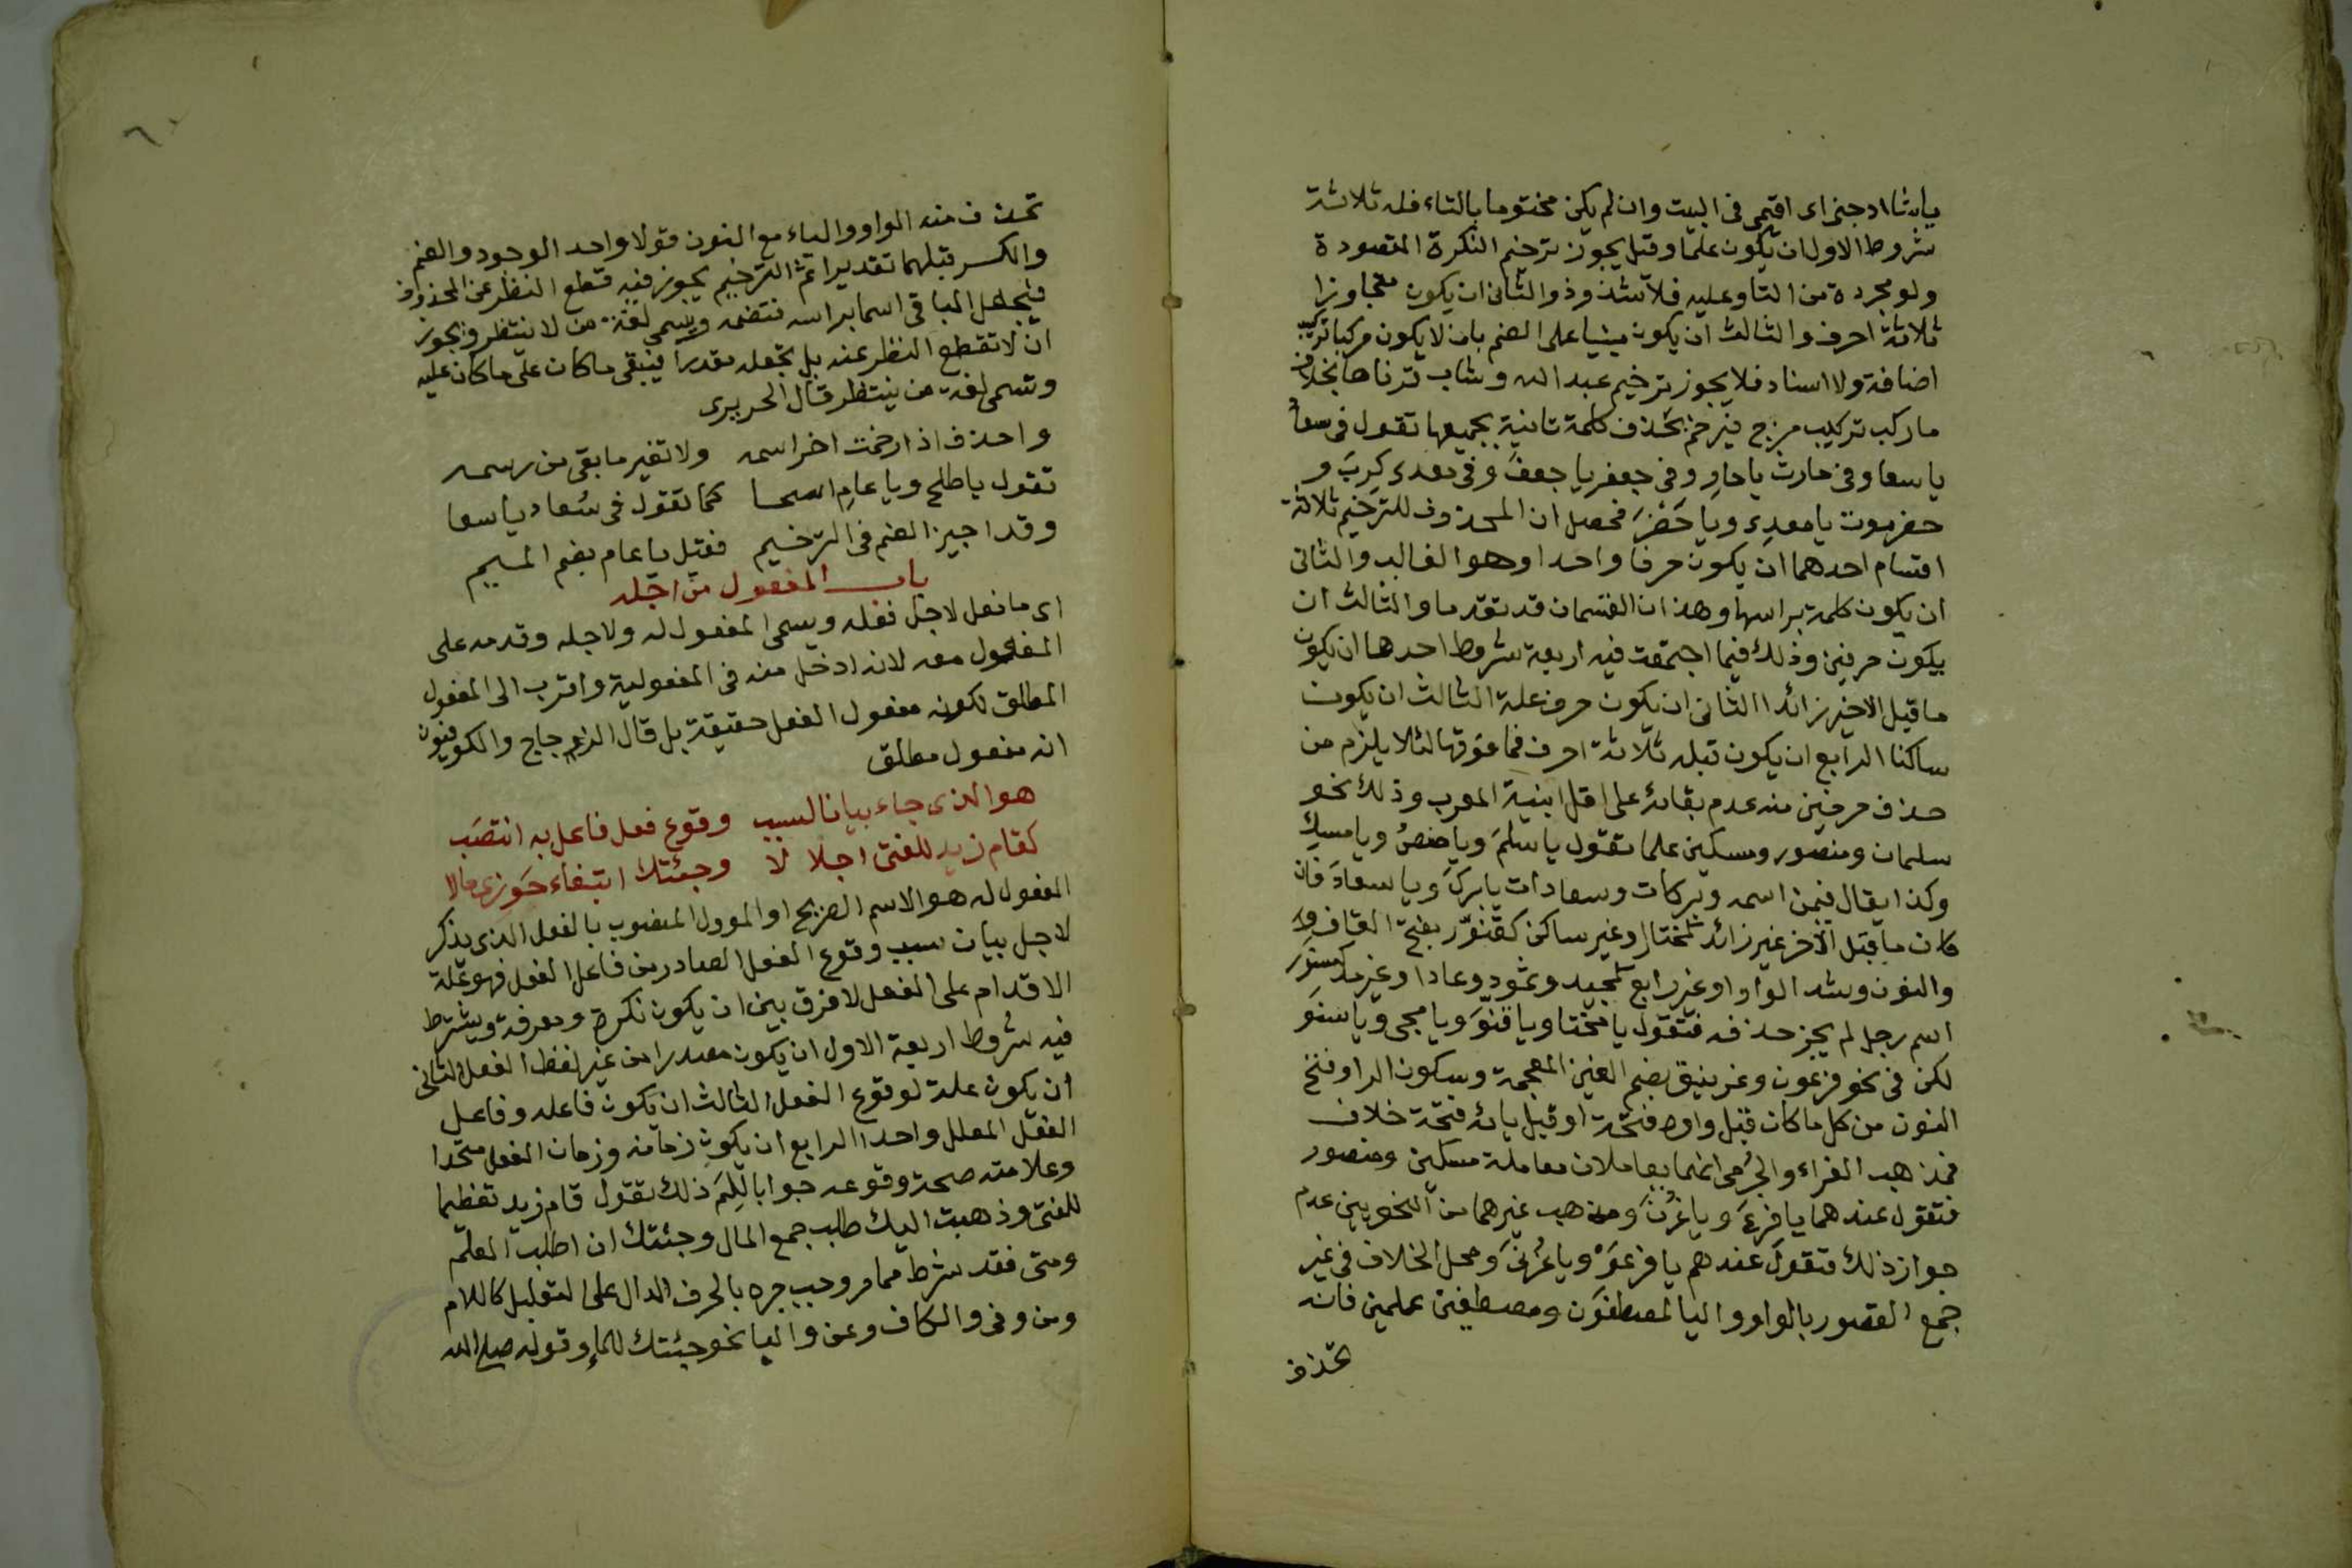 ياشا ادجنى اى اقيمى فى البيت وان لم يكن مختوما بالتاء فله ثلاثة
شروط الاول ان يكون علما وقيل يجوز ترخيم النكرة المقصودة
ولو مجردة من التا وعليه فلا شذوذ والثانى ان يكون متجاوزا
ثلاثة احرف والثالث ان يكون مبنيا على الضم بان لا يكون مركبا تركيب
اضافة ولا اسناد فلا يجوز ترخيم عبد الله وشاب قرناها بخلاف
ما ركب تركيب مزج فيرخم بحذف كلمة ثانية بجميعها تقول فى سعاد
يا سعا وفى حارث يا حارِ وفى جعفر يا جعفَ وفى معدى كربَ و
حضرموت يا معدى ويا حَضْرَ فحصل ان المحذوف للترخيم ثلاثة
اقسام احدهما ان يكون حرفا واحدا وهو الغالب والثانى
ان يكون كلمة براسها وهذان القسمان قد تقدما والثالث ان
يكون حرفين وذلك فيما اجتمعت فيه اربعة شروط احدها ان يكون
ما قبل الاخير زائدا الثانى ان يكون حرف علة الثالث ان يكون
ساكنا الرابع ان يكون قبله ثلاثة احرف فما فوقها لئلا يلزم من
حذف حرفين منه عدم بقائه على اقل ابنية المعرب وذلك نحو
سلمان ومنصور ومسكين علما تقول يا سلمَ ويا منصُ ويا مسكِ
وكذا يقال فيمن اسمه وبركات وسعادات يا بركَ ويا سعادَ فان
كان ما قبل الاخر غير زائد كمختار او غير ساكن كقنوّر بفتح القاف
والنون وشد الواو او غير رابع كمجيد وثمود وعادا وغير مد كسنور
اسم رجل لم يجز حذفه فتقول يا مختا ويا قنوَّ ويا مجى ويا سنوَ
لكن فى نحو فرعون وغرنيق بضم الغين المعجمة وسكون الرا وفتح
النون من كل ما كان قبل واوه فتحة او قبل يائه فتحة خلاف
فمذهب الفراء والجَرْمى انهما يعاملان معاملة مسكين ومنصور
فتقول عندهما يا فرعَ ويا غُرْنَ ومذهب غيرهما من النحويين عدم
جواز ذلك فتقول عندهم يا فرعَوْ ويا غُرْنَىْ ومحل الخلاف فى غير
جمع المقصور بالواو واليا لمصطفون ومصطفين علمين فانه
تحذف
٦٠
تحذف منه الواو والياء مع النون قولا واحد الوجود والضم
والكسر قبلهما تقديرا ثم الترخيم يجوز فيه قطع النظر عن المحذوف
فيجعل الباقى اسما براسه فتضمه ويسمى لغة من لا ينتظر ويجوز
ان لا تقطع النظر عنه بل تجعله مقدرا فيبقى ما كان على ما كان عليه
وتسمى لغة من ينتظر قال الحريرى
واحذف اذا رخمت اخر اسمه ولا تغير ما بقى من رسمه
تقول يا طلح ويا عامِ اسمعا كما تقول فى سُعاد يا سعا
وقد اجيز الضم فى الترخيم فقيل يا عام بضم الميم
باب المفعول من اجله
اى ما فعل لاجل فعله ويسمى المفعول له ولاجله وقدمه على
المفعول معه لانه ادخل منه فى المفعولية واقرب الى المفعول
المطلق لكونه مفعول الفعل حقيقة بل قال الزجاج والكوفيون
انه مفعول مطلق
هو الذى جاء بيانا لسبب وقوع فعل فاعل به انتصَب
كقام زيد للفتى اجلا لا وجئتك ابتغاء حَوزى مالا
المفعول له هو الاسم الصريح او الموول المنصوب بالفعل الذى يذكر
لاجل بيان سبب وقوع الفعل الصادر من فاعل الفعل فهو علة
الاقدام على الفعل لا فرق بين ان يكون نكرة ومعرفة ويشترط
فيه شروط اربعة الاول ان يكون مصدرا من غير لفظ الفعل الثانى
ان يكون علة لوقوع الفعل الثالث ان يكون فاعله وفاعل
الفعل المعلل واحدا الرابع ان يكون زمانه وزمان الفعل متحدا
وعلامته صحة وقوعه جوابا لِلِمَ ذلك تقول قام زيد تعظيما
للفتى وذهبت اليك طلب جمع المال وجئتك ان اطلب العلم
ومتى فقد شرط مما مر وجب جره بالحرف الدال على التعليل كاللام
ومن وفى والكاف وعن والبا نحو جئتك للماء وقوله صلى الله